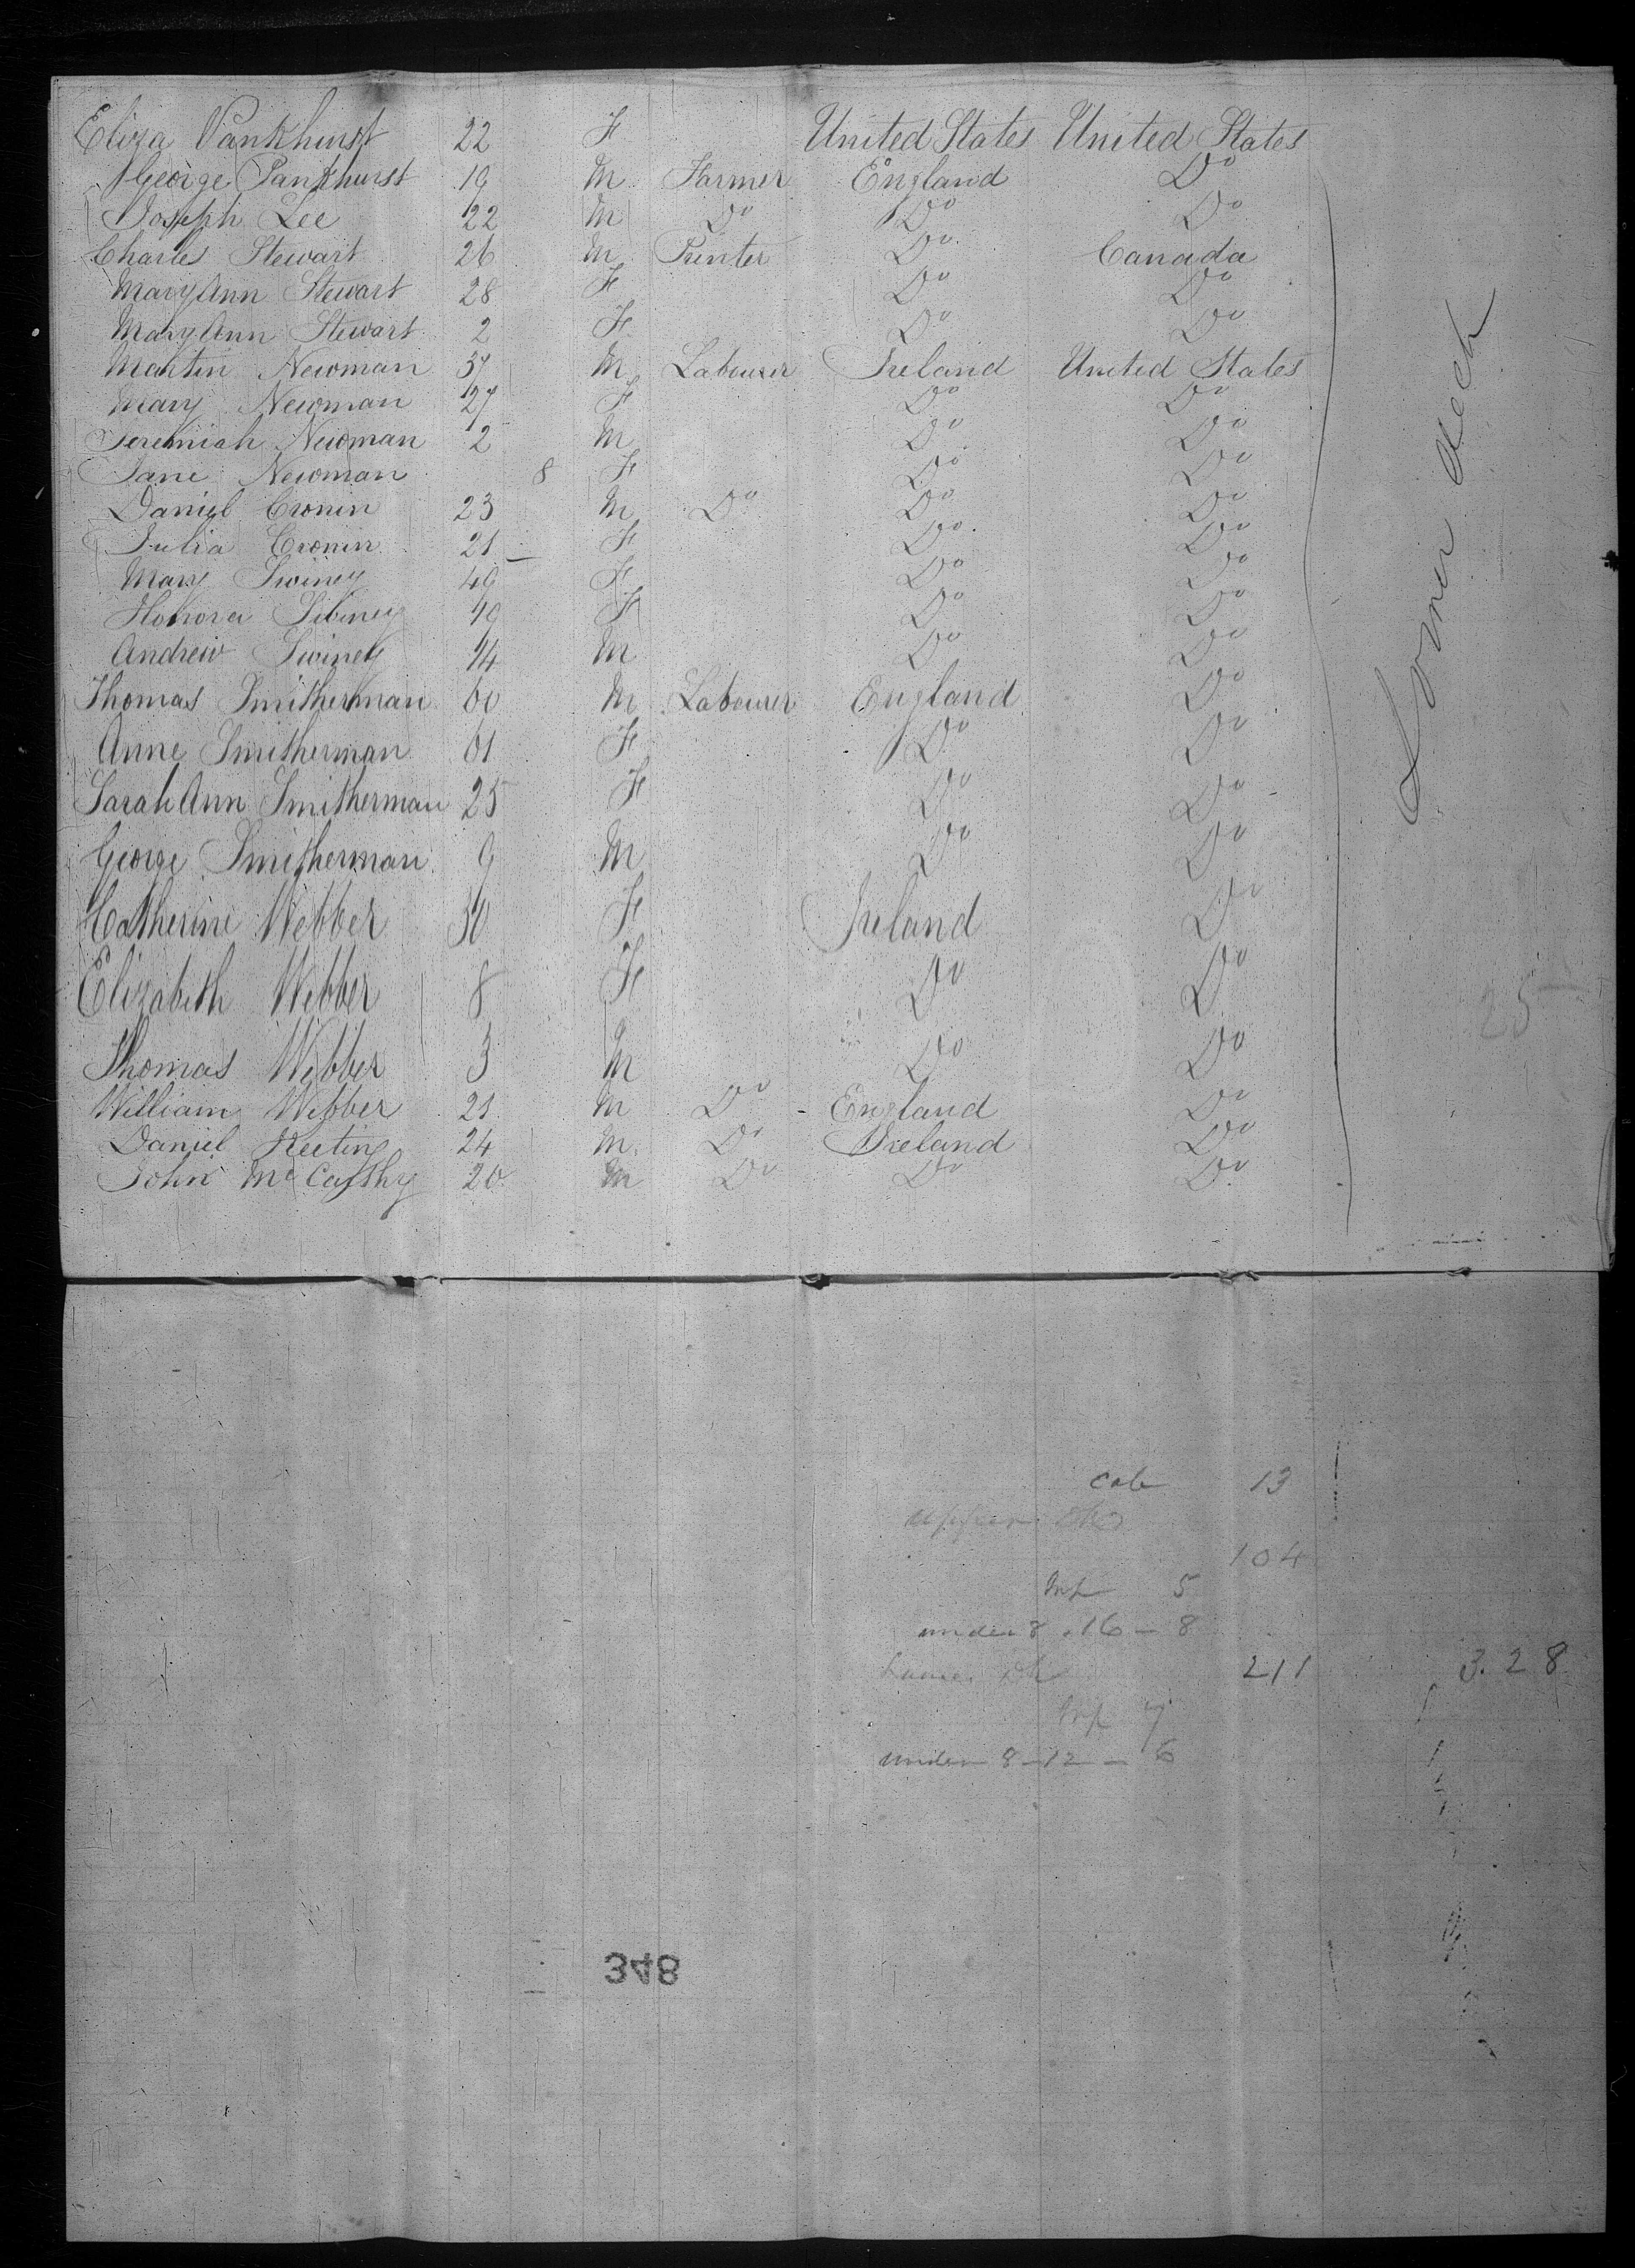 Eliza Pankhurst 22 F United States United States
George Pankhurst 19 M Farmer England Do
Joseph Lee 22 M Do Do Do
Charles Stewart 26 M Printer Do Canada
Mary Ann Stewart 28 F Do Do
Mary Ann Stewart 2 F Do Do
Martin Newman 37 M Labourer Ireland United States
Mary Newman 27 F Do Do
Jeremiah Newman 2 M Do Do
Jane Newman 8 F Do Do
Daniel Cronin 23 M Do Do Do
Julia Cronin 21 F Do Do
Mary Swiney F Do Do
Honora Swiney F Do Do
Andrew Swiney 14 M Do Do
Thomas Smitherman 60 M Labourer England Do
Anne Smitherman 61 F Do Do
Sarah Ann Smitherman 25 F Do Do
George Smitherman 9 M Do Do
Catherine Webber 30 F Ireland Do
Elizabeth Webber 8 F Do Do
Thomas Webber 3 M Do Do
William Webber 21 M Do England Do
Daniel Keeting 24 M Do Ireland Do
John McCarthy 20 M Do Do Do
Lower deck
25
Cab 13
upper Dk
104
Inf 5
under 8 . 16 - 8
Lower Dk 211 3.28
Inf 7
under 8 - 12 - 6
348